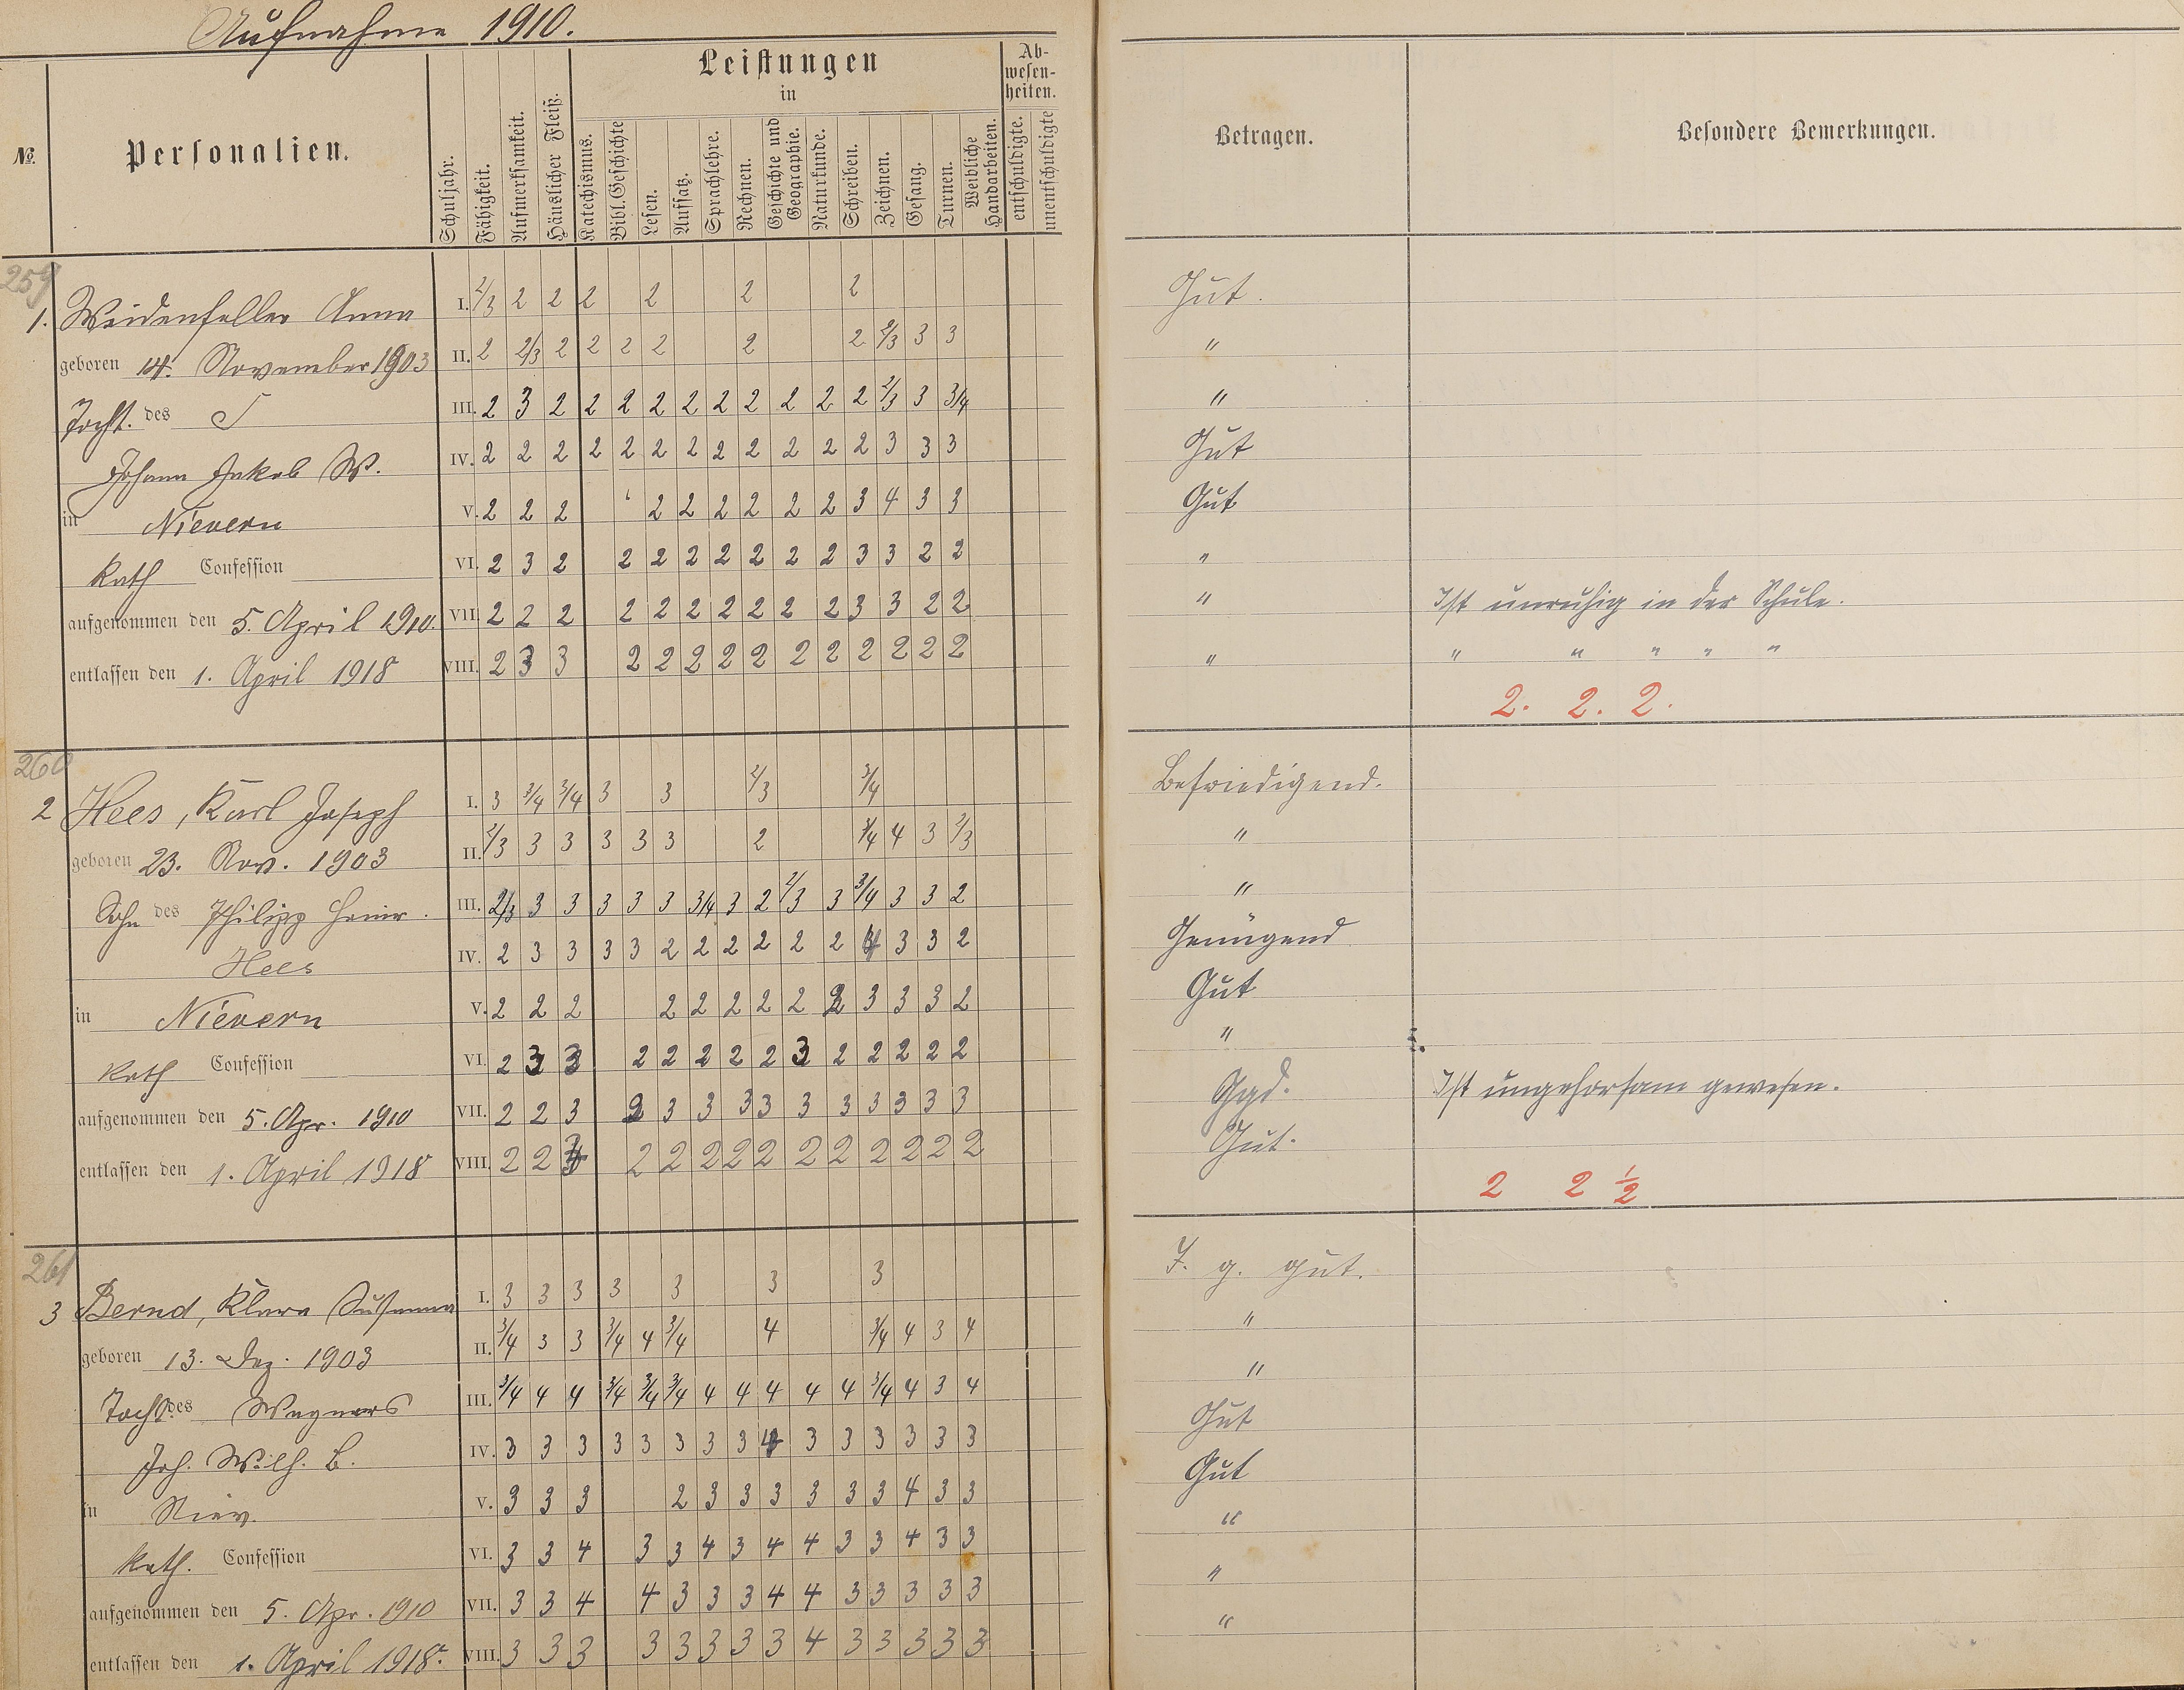 Aufnahme 1910.
No. Personalien. Schuljahr. Fähigkeit. Aufmerksamkeit. Häuslicher Fleiß. Leistungen in Katechismus. Bibl. Geschichte Lesen. Aufsatz. Sprachlehre. Rechnen. Geschichte und Geographie. Naturkunde. Schreiben. Zeichnen. Gesang. Turnen. Weibliche Handarbeiten. Ab-wesen-heiten. entschuldigte. unentschuldigte Betragen. Besondere Bemerkungen.
259
1. Weidenfeller Anna I. 2/3 2 2 2 2 2 2 Gut.
geboren 14. November 1903 II. 2 2/3 2 2 2 2 2 2 2/3 3 3 "
Tocht. des III. 2 3 2 2 2 2 2 2 2 2 2 2 2/3 3 3/4 "
Johann Jakob W. IV. 2 2 2 2 2 2 2 2 2 2 2 2 3 3 3 Gut
in Nievern V. 2 2 2 2 2 2 2 2 2 3 4 3 3 Gut
Kath Confession VI. 2 3 2 2 2 2 2 2 2 2 3 3 2 2 "
aufgenommen den 5. April 1910. VII. 2 2 2 2 2 2 2 2 2 2 3 3 2 2 " Ist unruhig in der Schule.
entlassen den 1. April 1918 VIII. 2 3 3 2 2 2 2 2 2 2 2 2 2 2 " " " " " "
2. 2. 2.
260
2 Hees, Karl Joseph I. 3 3/4 3/4 3 3 2/3 3/4 Befriedigend.
geboren 23. Nov. 1903 II. 2/3 3 3 3 3 3 2 3/4 4 3 2/3 "
Sohn des Philipp Heinr. III. 2/3 3 3 3 3 3 3/4 3 2 2/3 3 3/4 3 3 2 "
Hees IV. 2 3 3 3 3 2 2 2 2 2 2 3 3 2 Genügend
in Nievern V. 2 2 2 2 2 2 2 2 2 3 3 3 2 Gut
Kath Confession VI. 2 3 3 2 2 2 2 2 3 2 2 2 2 2 "
aufgenommen den 5. Apr. 1910 VII. 2 2 3 2 3 3 3 3 3 3 3 3 3 3 Ggd. Ist ungehorsam gewesen.
entlassen den 1. April 1918 VIII. 2 2 2 2 2 2 2 2 2 2 2 2 2 Gut.
2 2 1/2
261
3 Bernd, Klara Susanna I. 3 3 3 3 3 3 3 I. g. gut.
geboren 13. Dez. 1903 II. 3/4 3 3 3/4 4 3/4 4 3/4 4 3 4 "
Tocht. des Wagners III. 3/4 4 4 3/4 3/4 3/4 4 4 4 4 4 3/4 4 3 4 "
Joh. Wilh. B. IV. 3 3 3 3 3 3 3 3 4 3 3 3 3 3 3 Gut
in Niev. V. 3 3 3 2 3 3 3 3 3 3 4 3 3 Gut
Kath. Confession VI. 3 3 4 3 3 4 3 4 4 3 3 4 3 3 "
aufgenommen den 5. Apr. 1910 VII. 3 3 4 4 3 3 3 4 4 3 3 3 3 3 "
entlassen den 1. April 1918. VIII. 3 3 3 3 3 3 3 3 4 3 3 3 3 3 "